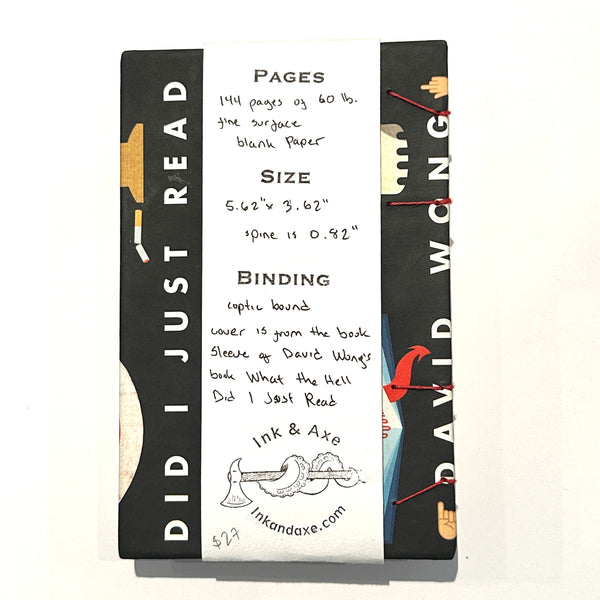 DID I JUST READ
PAGES
144 pages of 60 lb.
fine surface
blank Paper
SIZE
5.62"x 3.62"
spine is 0.82"
BINDING
coptic bound
cover is from the book
Sleeve of David Wong's
book What the Hell
Did I Just Read
Ink & Axe
Inkandaxe.com
$27
DAVID WONG